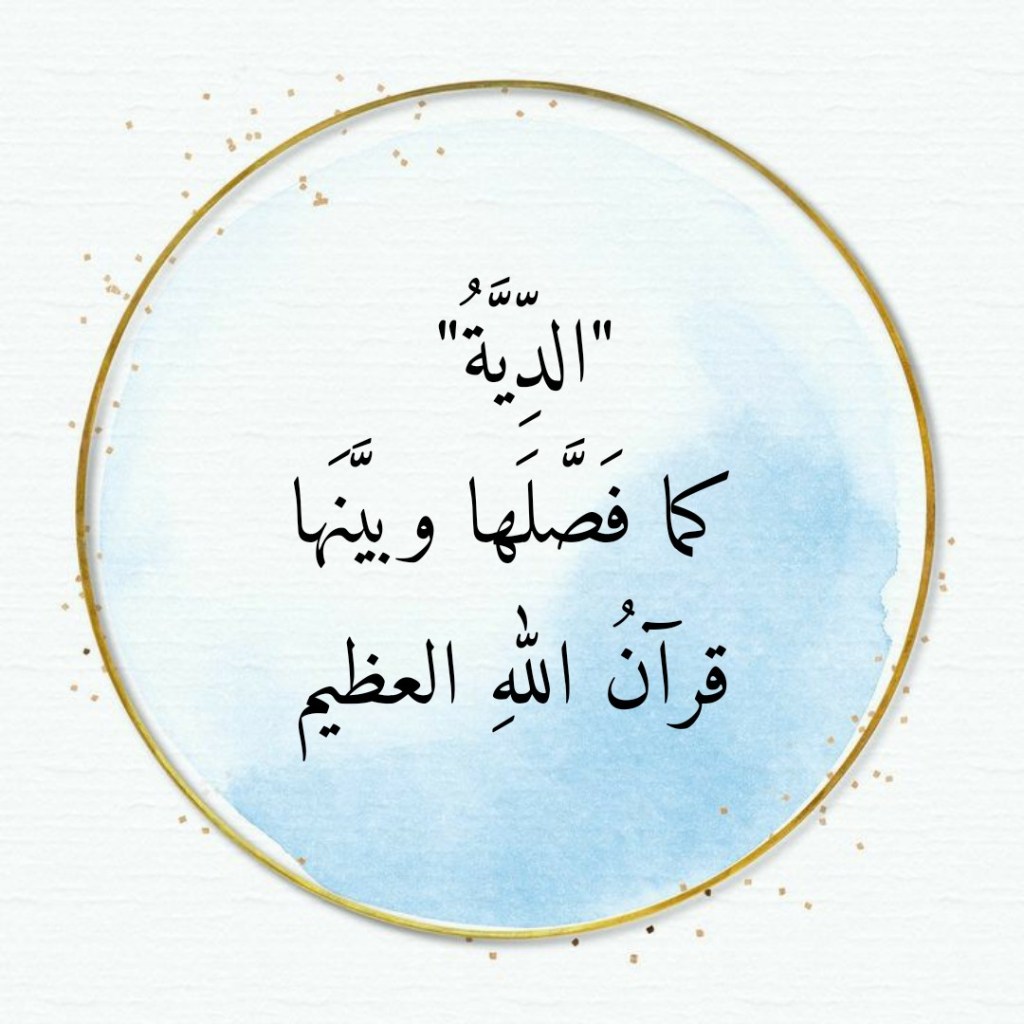 "الدِّيَّةُ"
كما فَصَّلَها وبيَّنَها
قرآنُ اللهِ العظيم